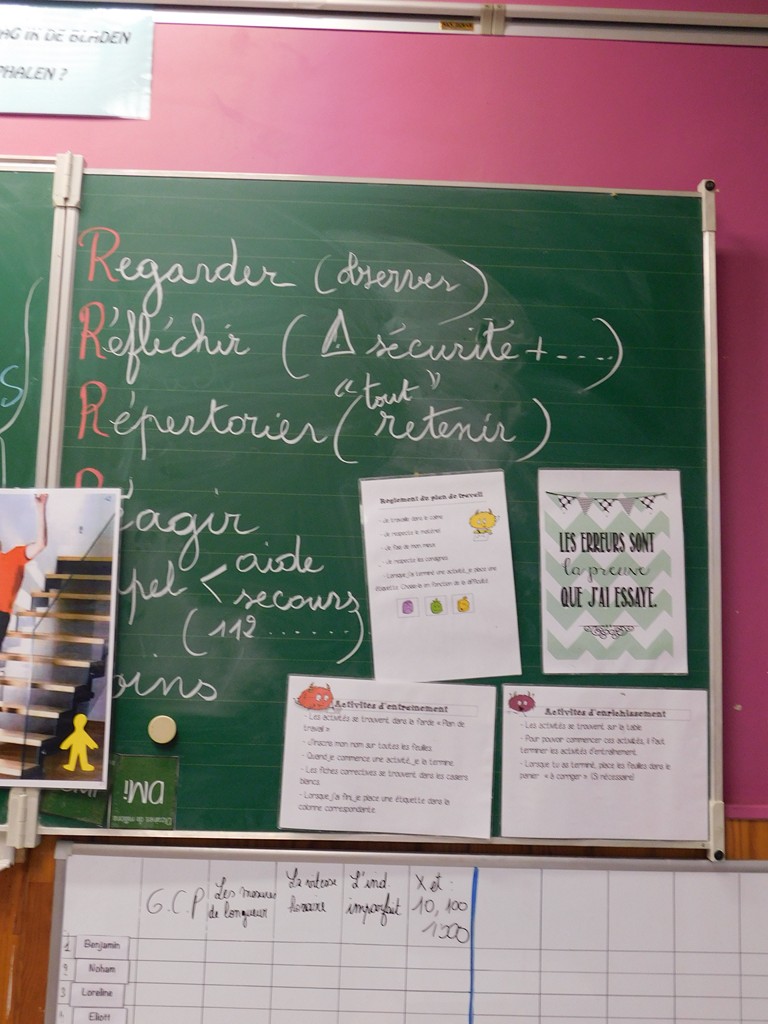 AG IK DE BLADEN
PHALEN ?
Regarder (observer)
Réfléchir (⚠ sécurité + ....)
Répertorier ("tout" retenir)
éagir
pel < aide
secours
(112 ......)
oins
S
Règlement du plan de travail
- Je travaille dans le calme
- Je respecte le matériel
- Je fais de mon mieux
- Je respecte les consignes
- Lorsque j'ai terminé une activité, je place une
étiquette. Choisie en fonction de la difficulté.
LES ERREURS SONT
la preuve
QUE J'AI ESSAYE.
Activités d'entrainement
- Les activités se trouvent dans la farde « Plan de
travail »
- J'inscris mon nom sur toutes les feuilles
- Quand je commence une activité, je la termine
- Les fiches correctives se trouvent dans les casiers
blancs
- Lorsque j'ai fini, je place une étiquette dans la
colonne correspondante.
Activités d'enrichissement
- Les activités se trouvent sur la table
- Pour pouvoir commencer ces activités, il faut
terminer les activités d'entraînement
- Lorsque tu as terminé, place les feuilles dans le
panier « à corriger » (Si nécessaire)
DMi
Dizaines de milliers
G.C.P
Les mesures
de longueur
La vitesse
horaire
L'ind.
imparfait
X et :
10, 100
1000
1 Benjamin
Noham
3 Loreline
Eliott